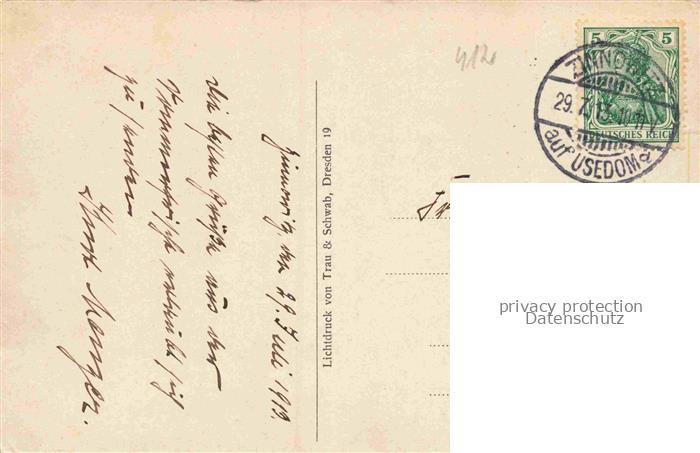 Zinnowitz, den 29. Juli 1913.
Die besten Grüße aus der
Sommerfrische erlaubt sich
zu senden
Menzer.
Lichtdruck von Trau & Schwab, Dresden 19
412
5 5
DEUTSCHES REICH
ZINNOWITZ
29.7.13. 10-11 V
auf USEDOM
privacy protection
Datenschutz